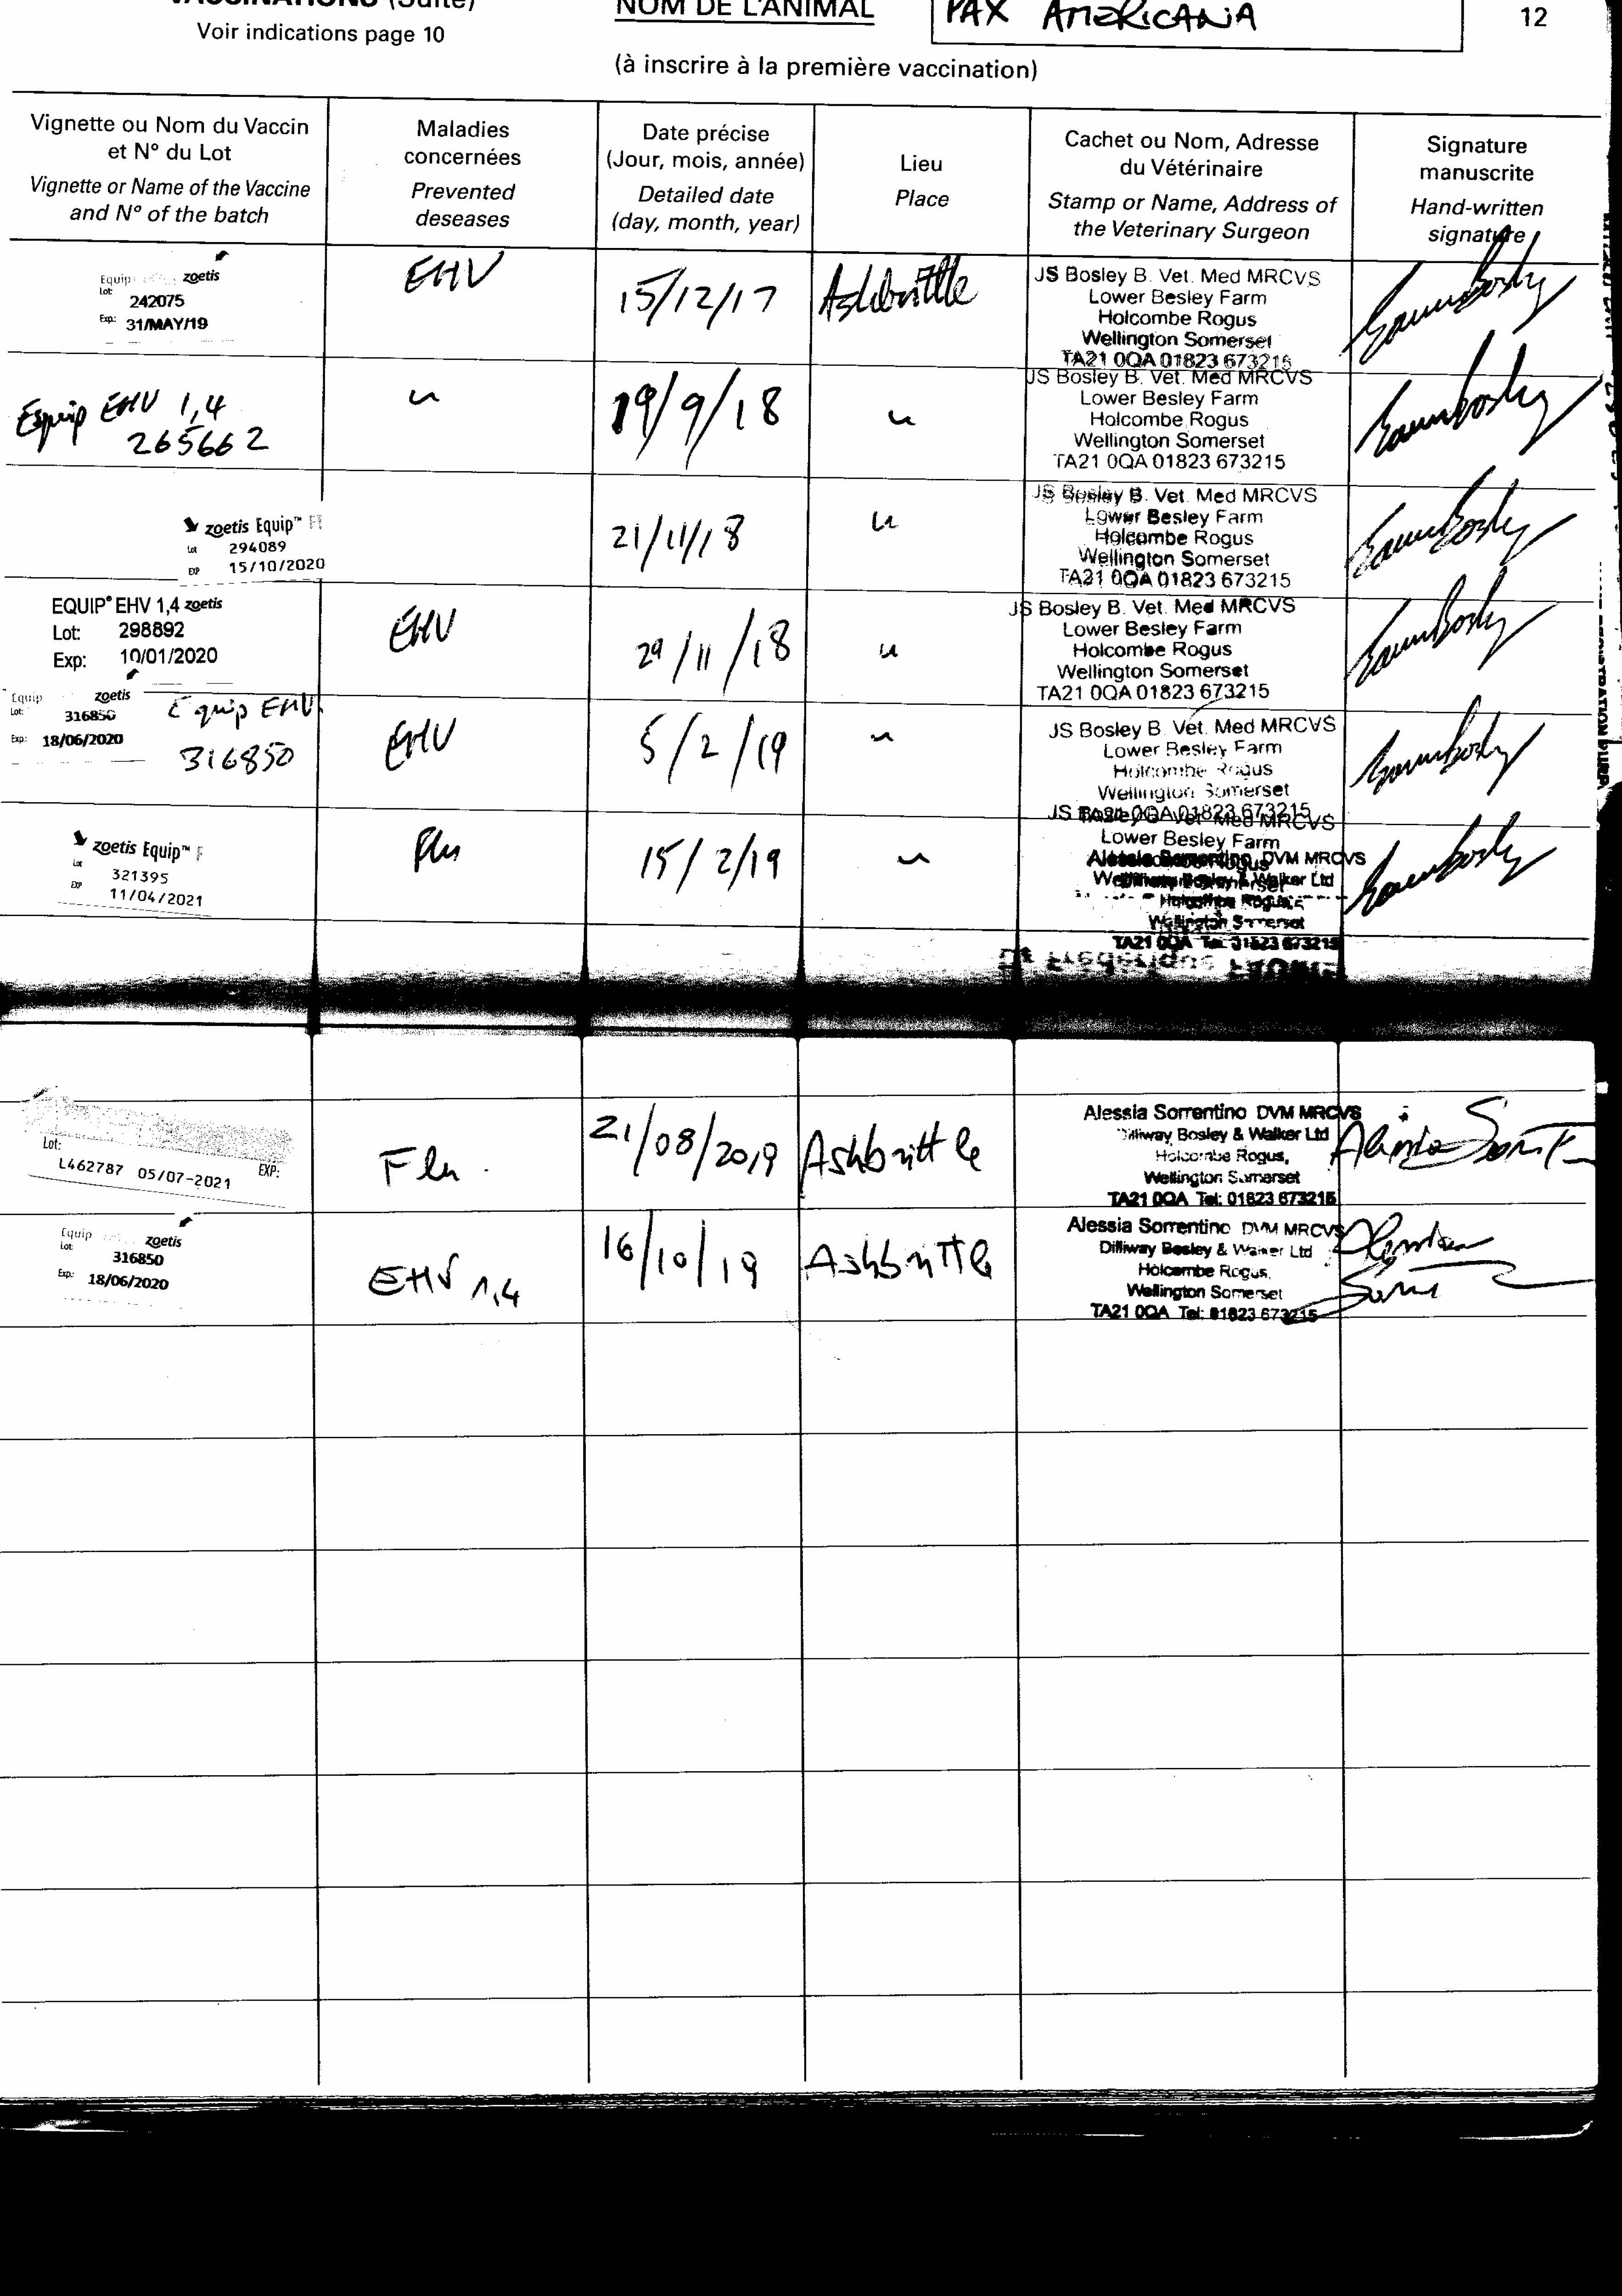 VACCINATIONS (Suite)
Voir indications page 10
NOM DE L'ANIMAL
PAX AMERICANA
12
(à inscrire à la première vaccination)
Vignette ou Nom du Vaccin
et N° du Lot
Vignette or Name of the Vaccine
and N° of the batch
Maladies
concernées
Prevented
deseases
Date précise
(Jour, mois, année)
Detailed date
(day, month, year)
Lieu
Place
Cachet ou Nom, Adresse
du Vétérinaire
Stamp or Name, Address of
the Veterinary Surgeon
Signature
manuscrite
Hand-written
signature
Equip zoetis
Lot: 242075
Exp: 31/MAY/19
EHV
15/12/17
Ashbrittle
JS Bosley B. Vet. Med MRCVS
Lower Besley Farm
Holcombe Rogus
Wellington Somerset
TA21 0QA 01823 673215
Equip EHV 1,4
265662
"
19/9/18
"
JS Bosley B. Vet. Med MRCVS
Lower Besley Farm
Holcombe Rogus
Wellington Somerset
TA21 0QA 01823 673215
zoetis Equip™ F
Lot 294089
EXP 15/10/2020
21/11/18
"
JS Bosley B. Vet. Med MRCVS
Lower Besley Farm
Holcombe Rogus
Wellington Somerset
TA21 0QA 01823 673215
EQUIP® EHV 1,4 zoetis
Lot: 298892
Exp: 10/01/2020
EHV
29/11/18
"
JS Bosley B. Vet. Med MRCVS
Lower Besley Farm
Holcombe Rogus
Wellington Somerset
TA21 0QA 01823 673215
Equip zoetis
Lot: 316850
Exp: 18/06/2020
Equip EHV
316850
EHV
5/2/19
"
JS Bosley B. Vet. Med MRCVS
Lower Besley Farm
Holcombe Rogus
Wellington Somerset
TA21 0QA 01823 673215
zoetis Equip™ F
Lot 321395
EXP 11/04/2021
Flu
15/2/19
"
JS Bosley B. Vet. Med MRCVS
Lower Besley Farm
Alessia Sorrentino DVM MRCVS
Bosley & Walker Ltd
Holcombe Rogus,
Wellington Somerset
TA21 0QA Tel: 01823 673215
Dr Frédérique
Lot:
L462787 05/07-2021 EXP:
Flu.
21/08/2019
Ashbrittle
Alessia Sorrentino DVM MRCVS
Dilliway Bosley & Walker Ltd
Holcombe Rogus,
Wellington Somerset
TA21 0QA Tel: 01823 673215
Equip zoetis
Lot: 316850
Exp: 18/06/2020
EHV 1,4
16/10/19
Ashbrittle
Alessia Sorrentino DVM MRCVS
Dilliway Bosley & Walker Ltd
Holcombe Rogus,
Wellington Somerset
TA21 0QA Tel: 01823 673215